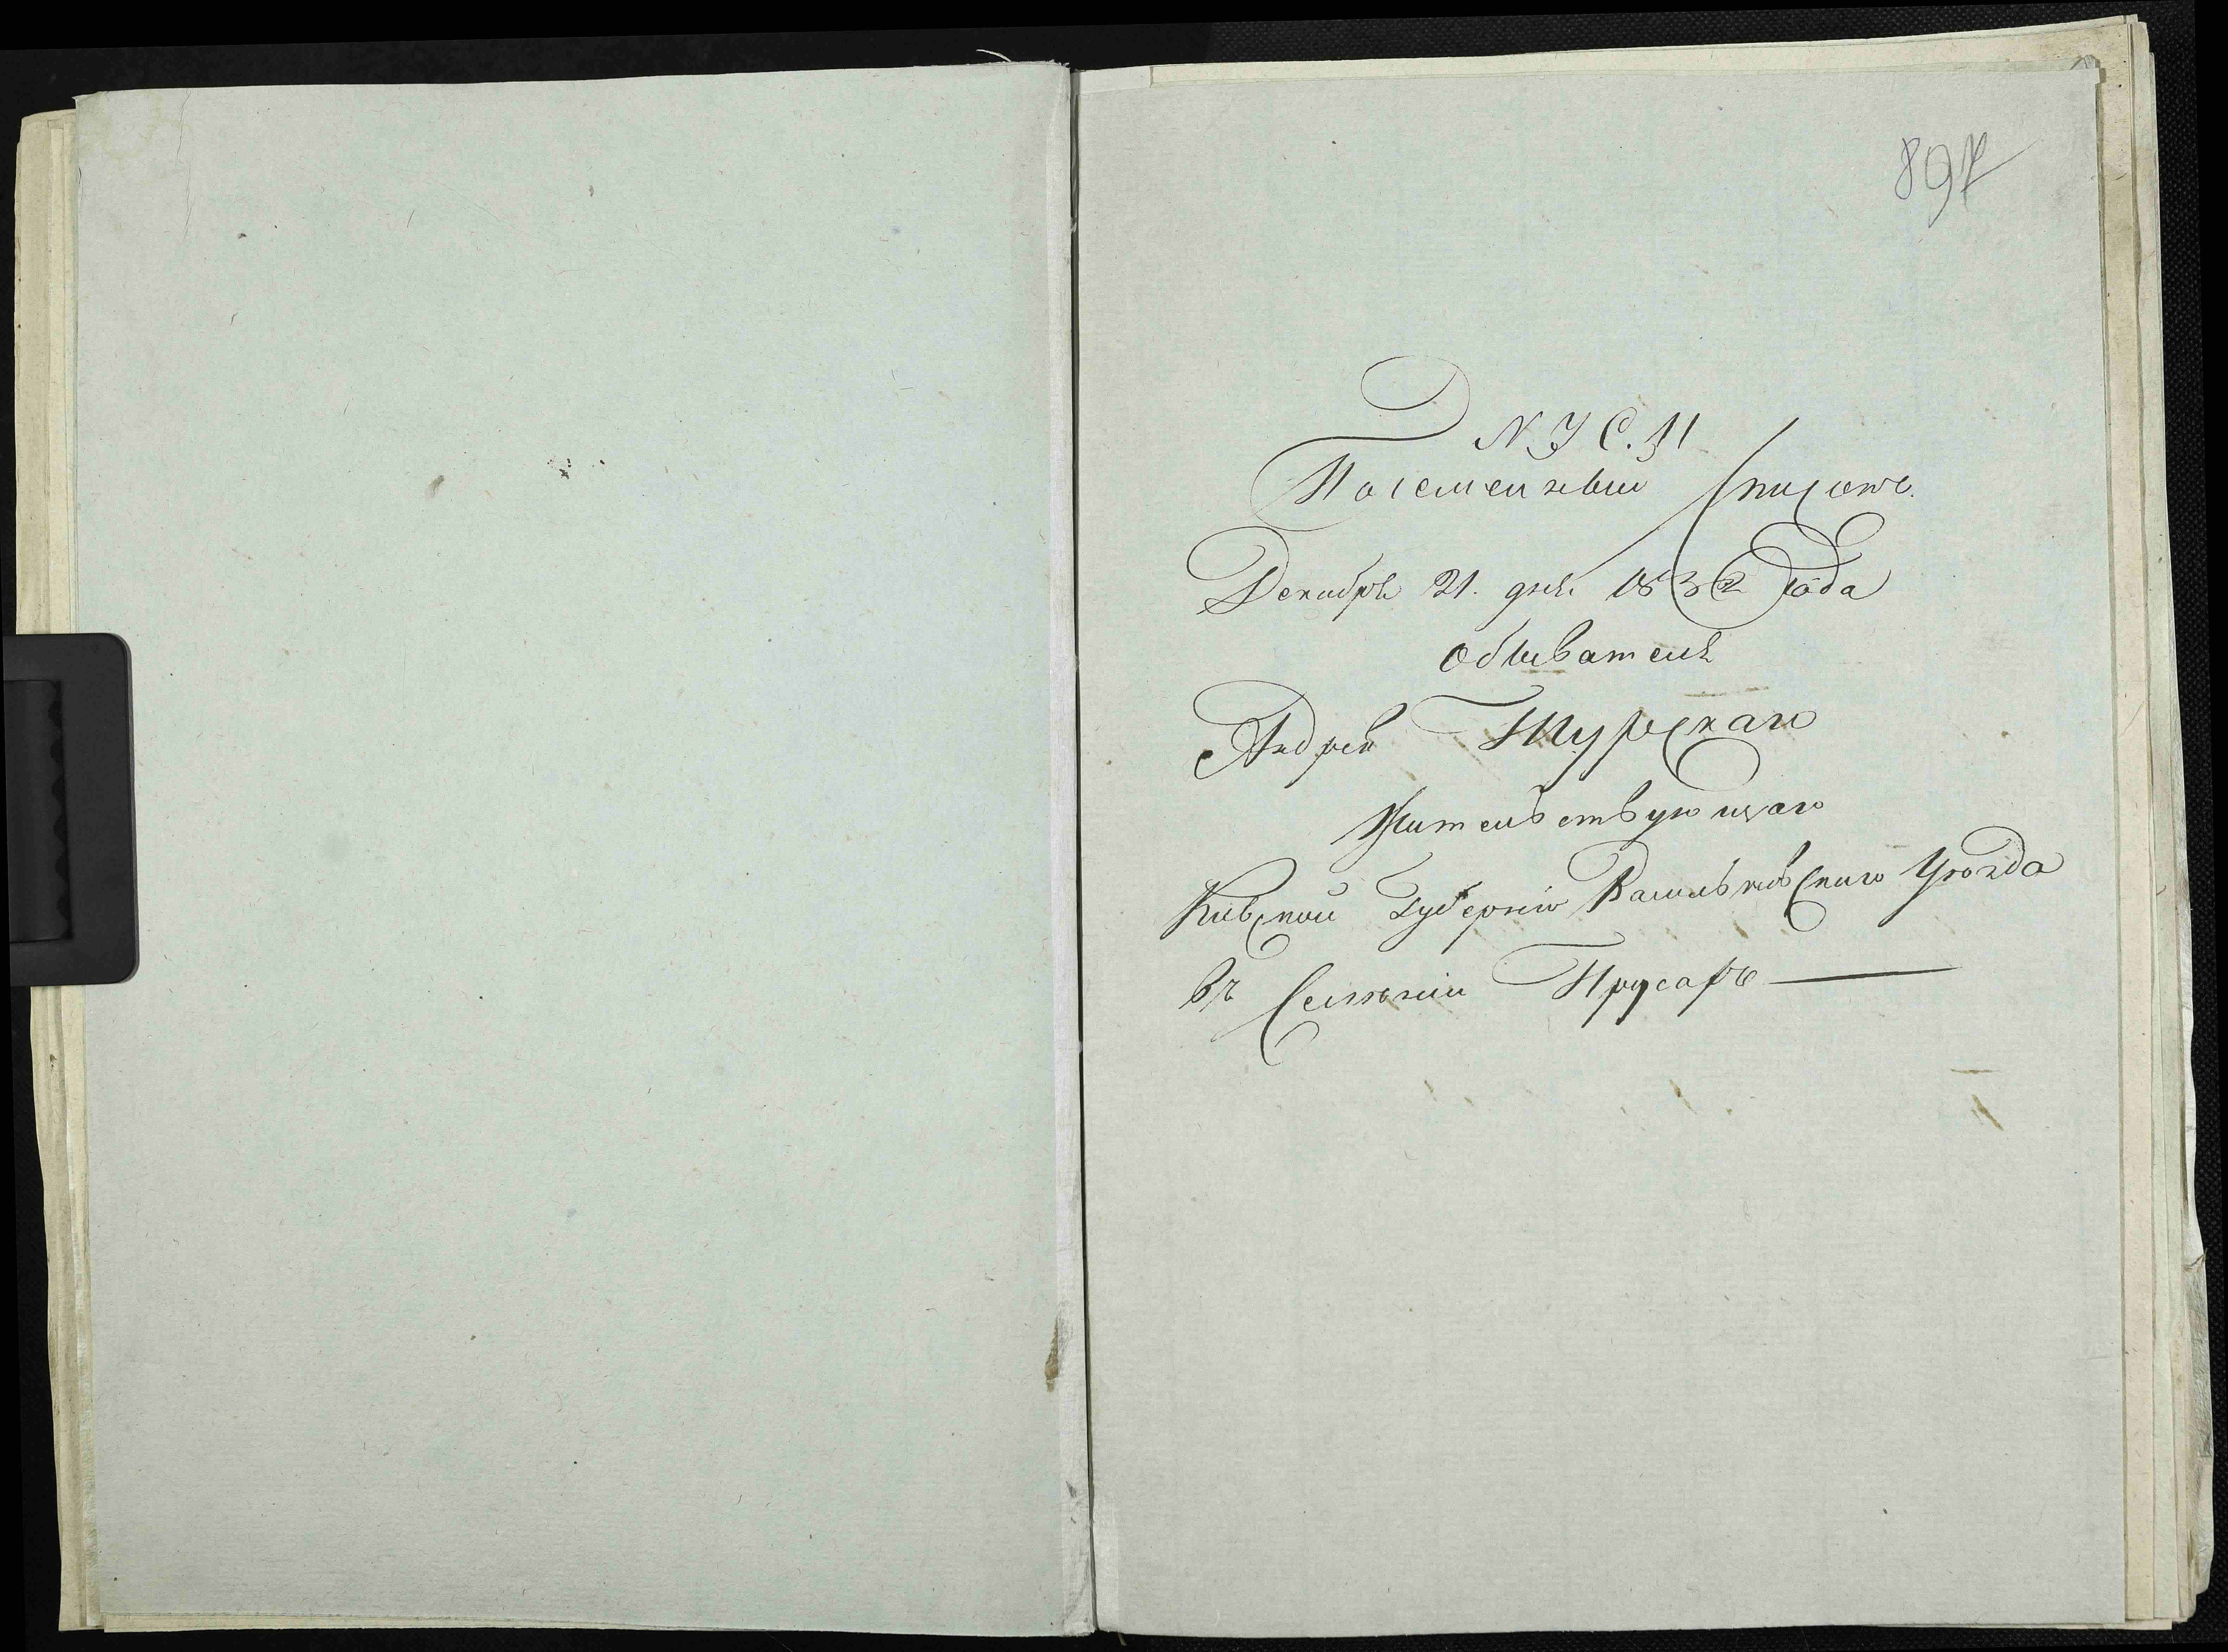 897
Посемейный Списокъ.
Декабря 21. дня 1832 Года
Обывателя
Андрея Турскаго
Жительствующаго
Киевской Губернии Васильковского Уѣзда
въ Селении